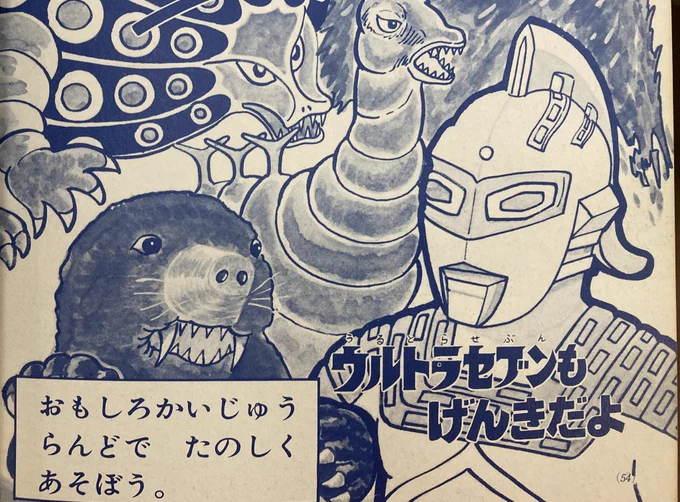 うるとらせぶん
ウルトラセブンも
げんきだよ
おもしろかいじゅう
らんどで　たのしく
あそぼう。
(54)